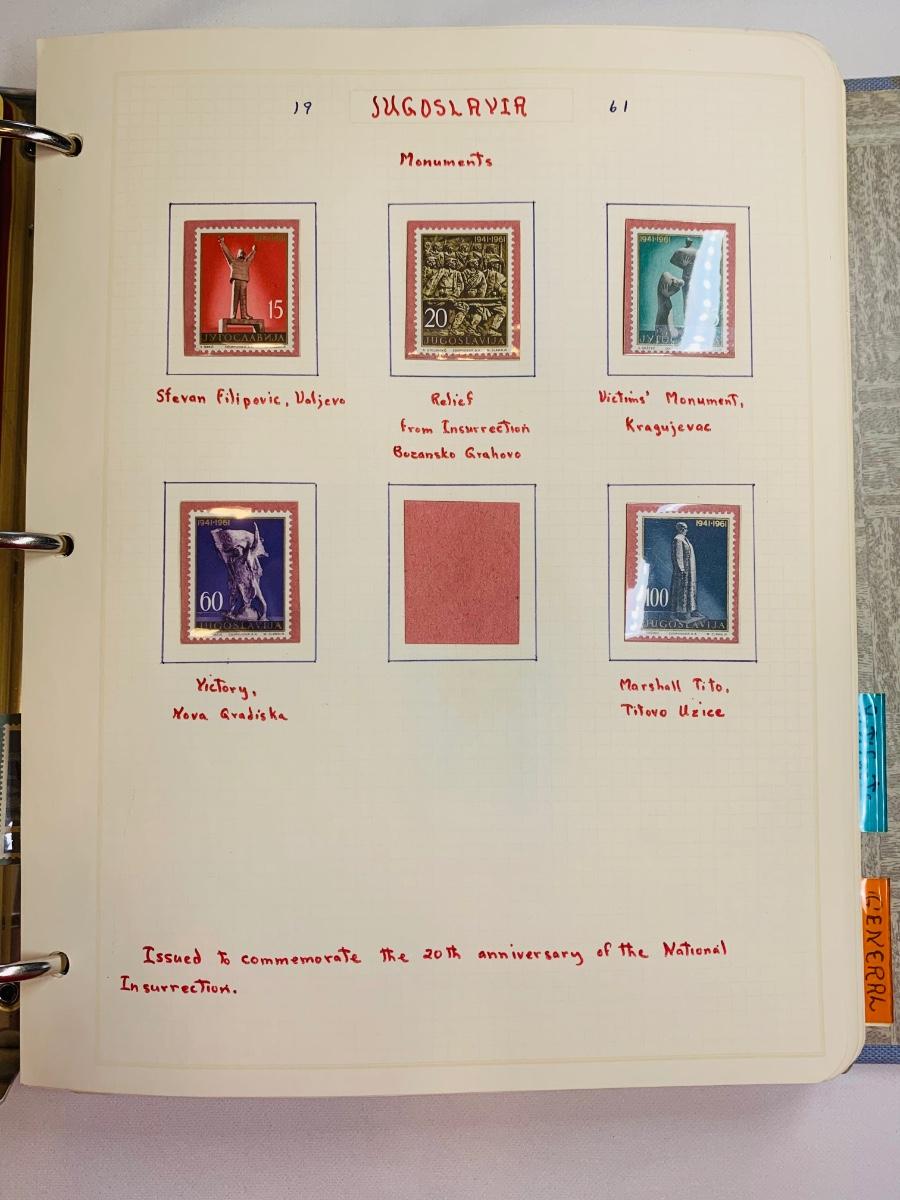 19 JUGOSLAVIA 61
Monuments
15
ЈУГОСЛАВИЈА
1941·1961
20
JUGOSLAVIJA
1941·1961
Stevan Filipovic, Valjevo
Relief
from Insurrection
Bozansko Grahovo
Victims' Monument,
Kragujevac
1941·1961
60
JUGOSLAVIJA
1941·1961
100
JUGOSLAVIJA
Victory,
Nova Gradiska
Marshall Tito,
Titovo Uzice
Issued to commemorate the 20th anniversary of the National
Insurrection.
GENERAL